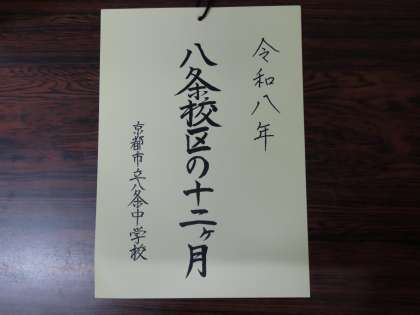 令和八年
八条校区の十二ヶ月
京都市立八条中学校